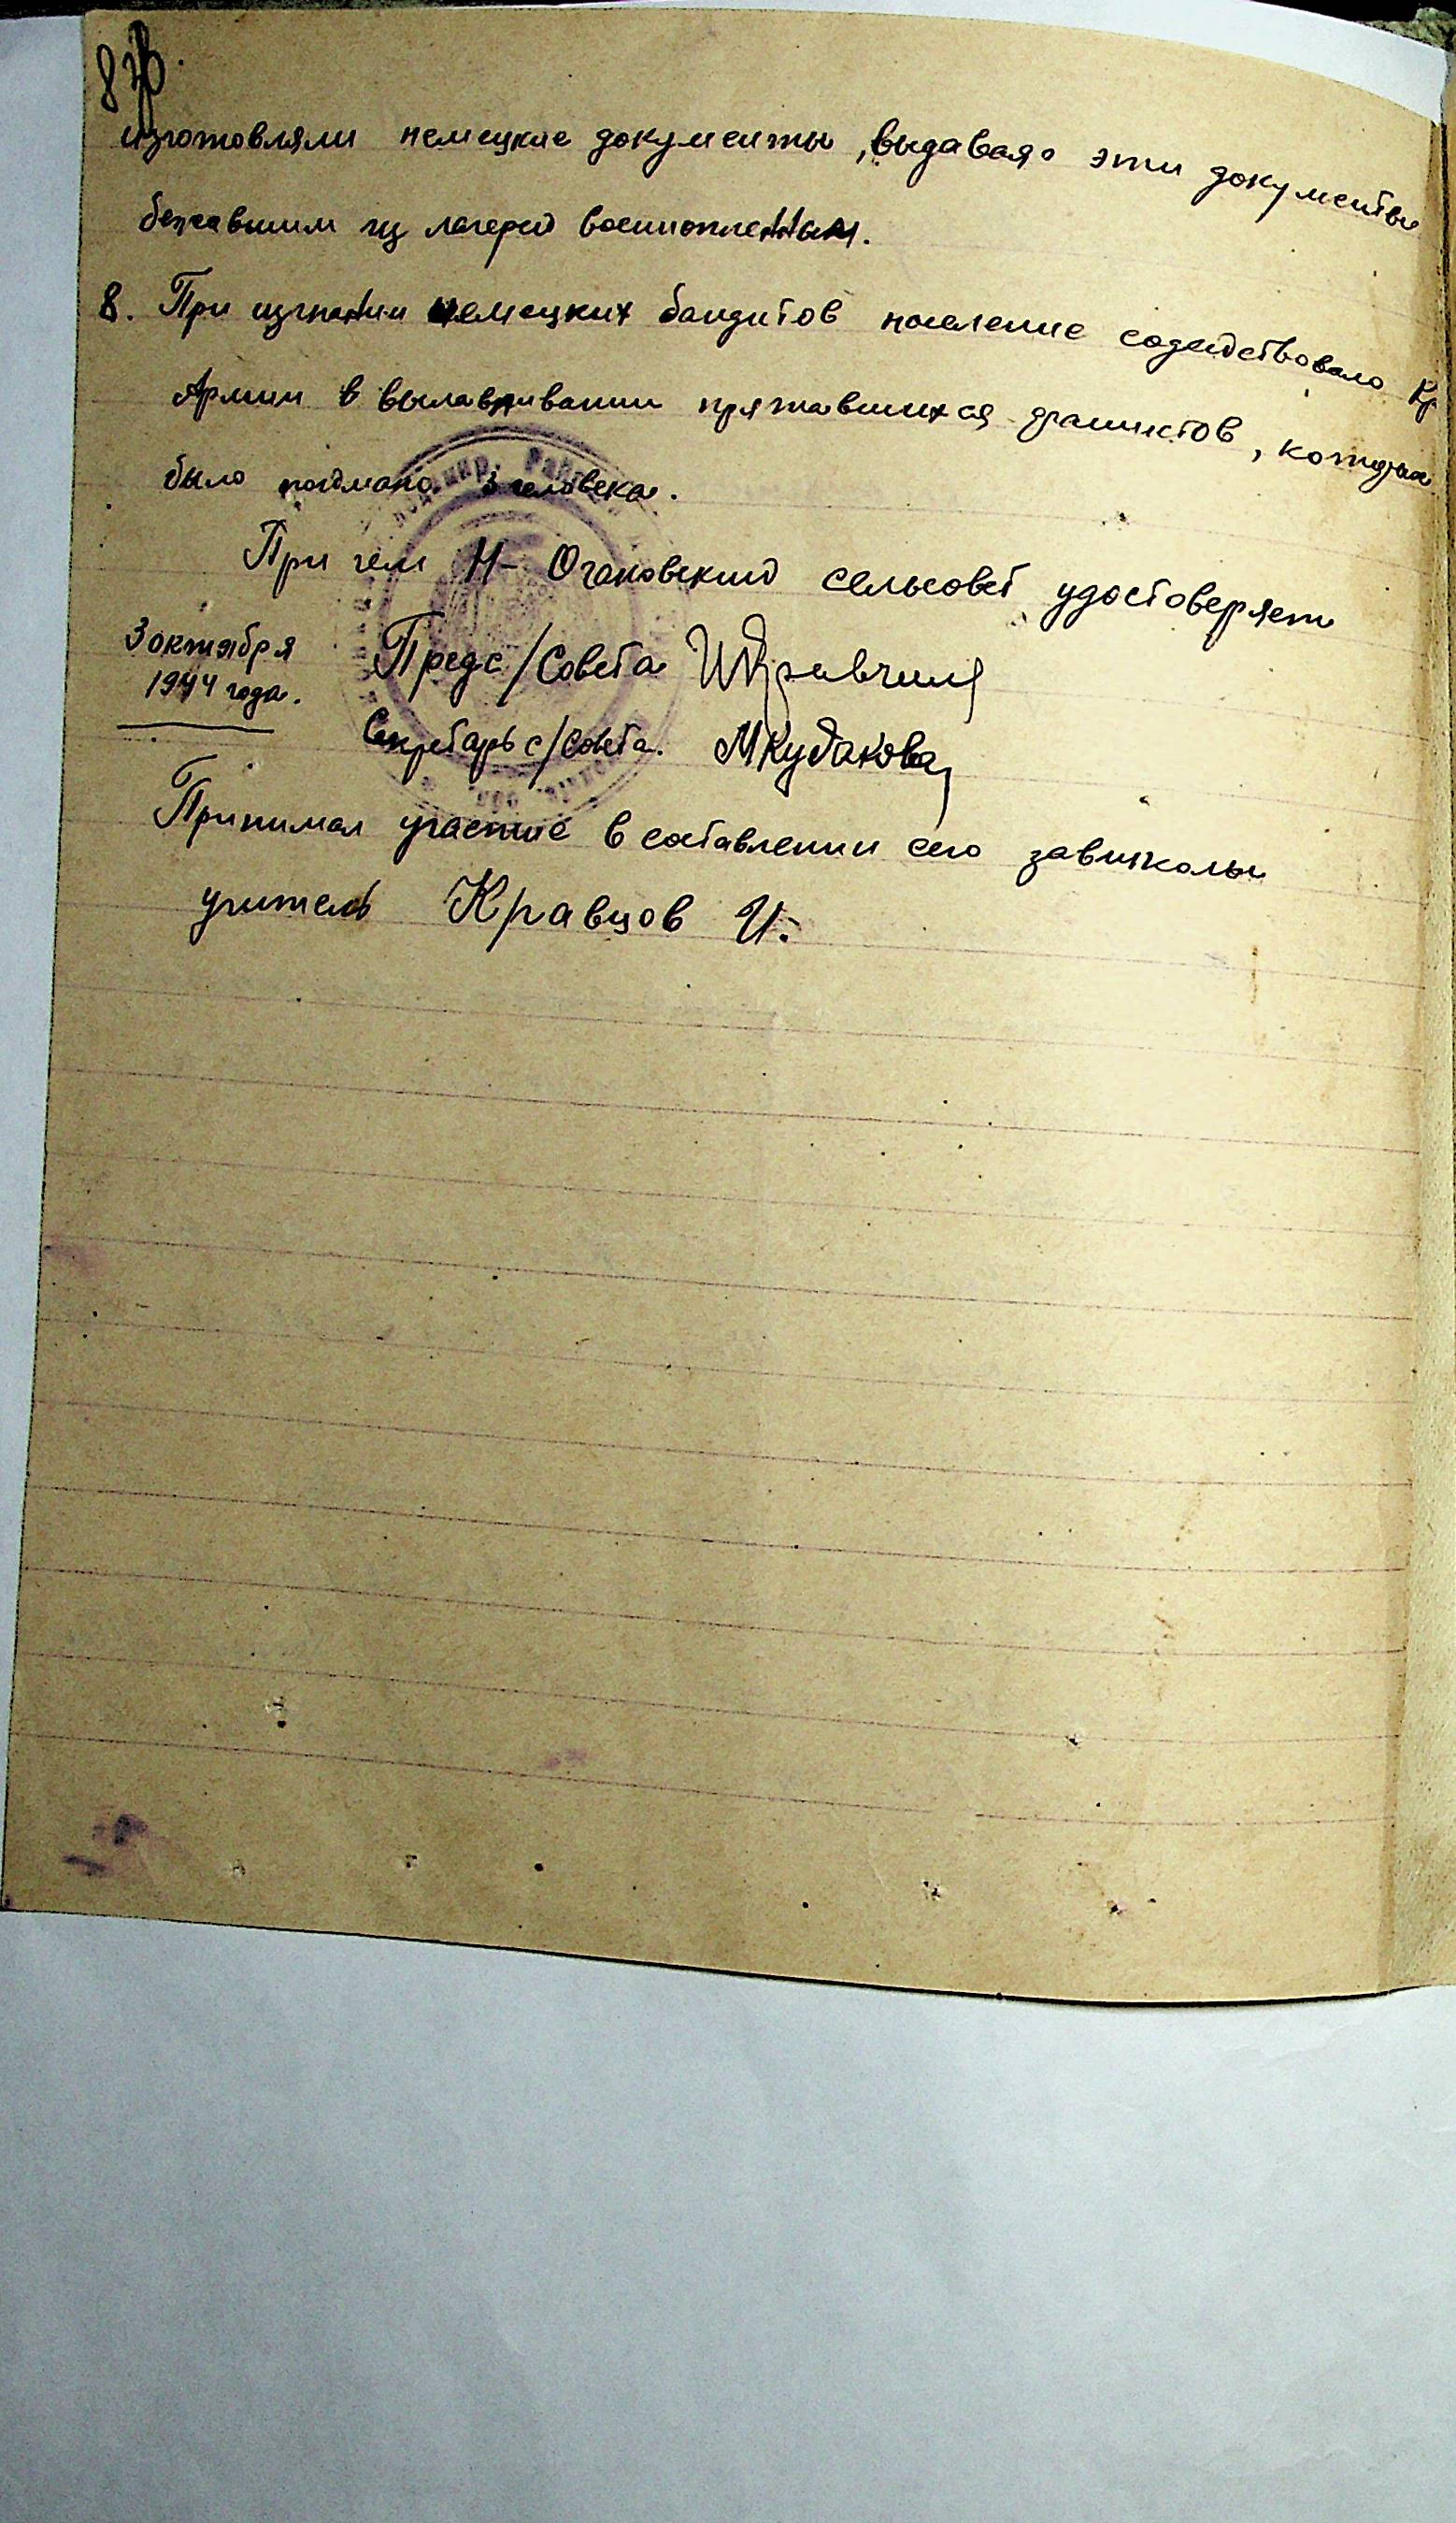 изготовляли немецкие документы, выдавая эти документы
бежавшим из лагерей военнопленным.
8. При изгнании немецких бандитов население содействовало Кр
Армии в вылавливании прятавшихся фашистов, которых
было поймано 3 человека.
При чем Н-Очаковский сельсовет удостоверяет
3 октября
1944 года.
Предс/Совета
Секретарь с/Совета. МКудакова
Принимал участие в составлении сего завшколы
учитель Кравцов И.